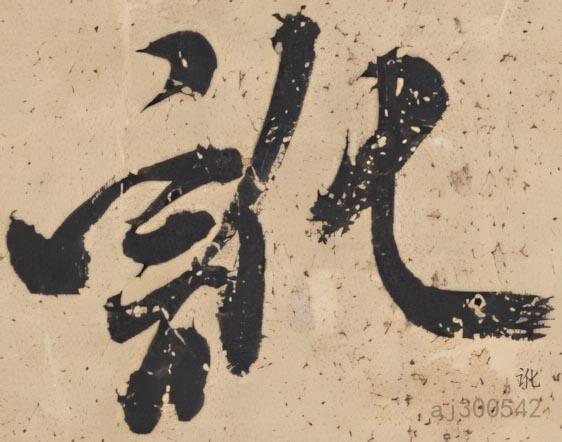 訛
讹
aj300542